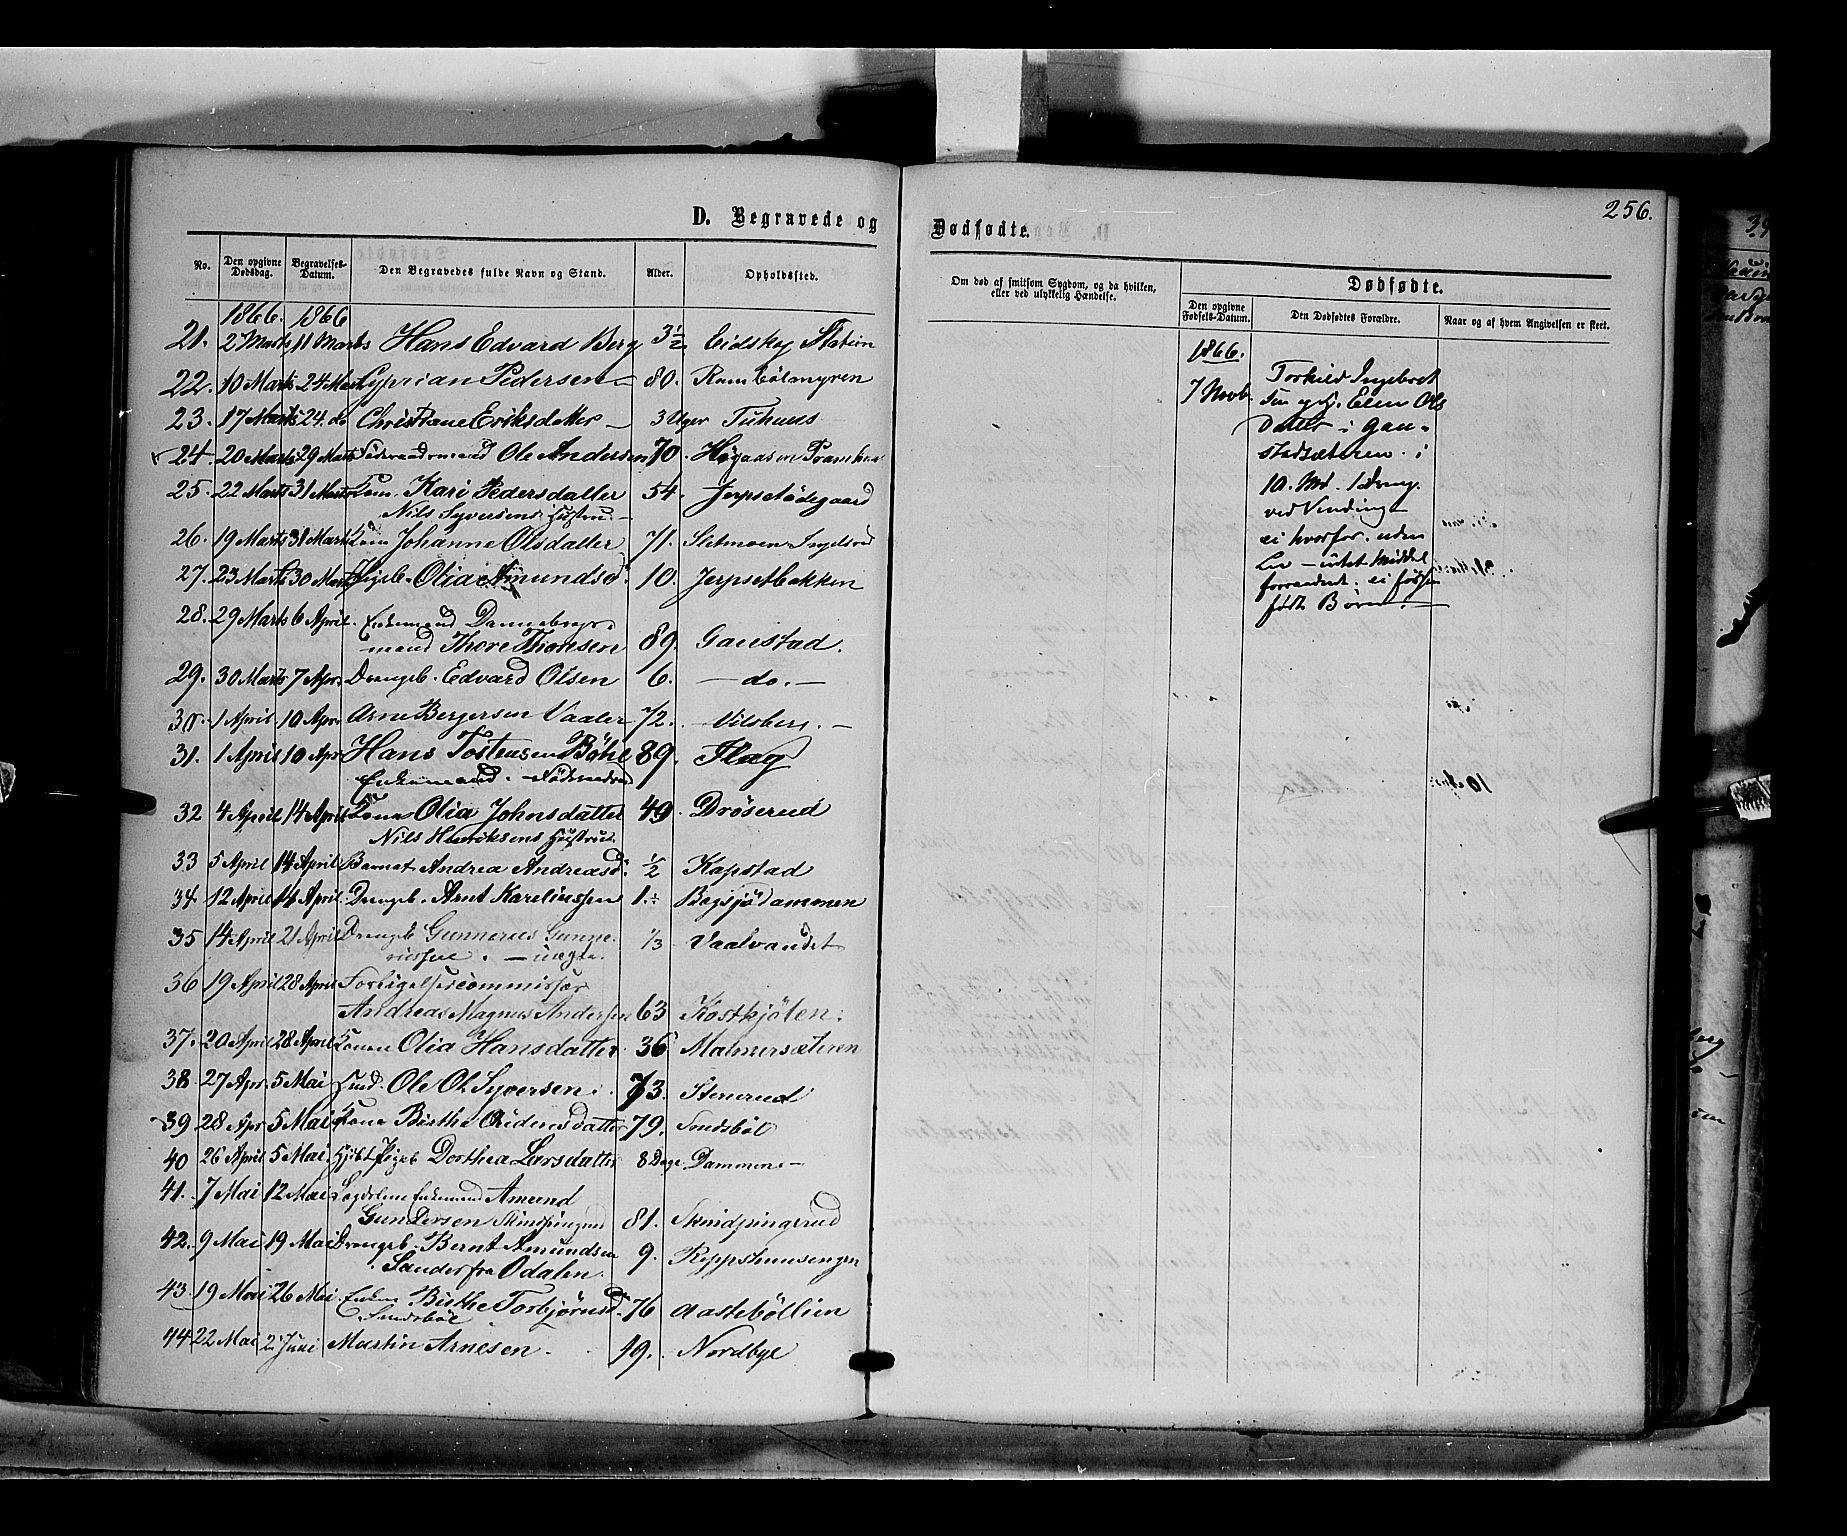 256.
D. Begravede og Dødfødte.
No. Den opgivne Dødsdag. Begravelses-Datum. Den Begravedes fulde Navn og Stand. Alder. Opholdssted.
Om død af smitsom Sygdom, og da hvilken, eller ved ulykkelig Hændelse.
Dødfødte.
Den opgivne Fødsels-Datum. Den Dødfødtes Forældre. Naar og af hvem Angivelsen er skeet.
1866. 1866
21. 2 Marts 11 Marts Hans Edvard Berg 3½ Eidskog Station
22. 10 Marts 24 Marts Cyprian Pedersen — 80. Rambölmyren
23. 17 Marts 24. do Christiane Eriksdatter — 3 Uger Tuhuus
24. 20 Marts 29 Marts Föderaadsmand Ole Andersen 70.
25. 22 Marts 31 Marts Kone Kari Pedersdatter 54. Jerpsetödegaard
Nils Syversens Hustru —
26. 19 Marts 31 Marts Kone Johanne Olsdatter 71.
27. 23 Marts 30 Marts Pigeb. Olia Amundsd. 10. Jerpsetbakken
28. 29 Marts 6 April. Enkemand Dannebrogs-
mand Thore Thorsen 89. Gaustad.
29. 30 Marts 7 Apr. Drengeb. Edvard Olsen 6. — do. —
30. 1 April 10 Apr. Arne Bergersen Vaaler 72. Vilsberg. —
31. 1 April 10 Apr Hans Tostensen Böhl 89. Flag
Enkemand. Föderaadsmd
32 4 April 14 April Kone Olia Johnsdatter 49. Dröserud
Nils Henriksens Hustru.
33 5 April 14 April Barnet Andrea Andreasd. ½ Kapstad
34. 12 April 14 April. Drengeb. Arnt Karelinssen 1. Bogsjödammen
35 14 April 21 April Drengeb Gunnerius Gunne-
riussen. — uægte. ⅓ Vaalvandet
36 19 April 28 April Forligelsescommissær
Andreas Magnus Andersen 63 Kostkjölen.
37. 20 April 28 April Konen Olia Hansdatter. 36 Malmersæteren
38 27 Apr. 5 Mai Inds. Ole Ol. Syversen. 73. Stenerud
39 28 Apr 5 Mai Kone Birthe datter 79. Sundsböl
40 26 April 5 Mai. Hjdt. Pigeb Dorthea Larsdatter 8 Dage Dammene —
41. 7 Mai 12 Mai Enkemand Amund
Gundersen Skindpingrud 81. Skindpingerud
42. 9 Mai 19 Mai Drengeb. Bernt Amundsen 9. Reppshuusengen
Sander fra Odalen.
43. 19 Mai 26 Mai Enken Birthe Torbjörnsd. 76 Aastebøllien
Sundsböl
44 22 Mai 2. Juni Martin Arnesen. 19. Nordbye
1866.
7 Novb. Torkild Ingebret
sen og h. Elen Ols
datter i Gau-
stadsæteren. i
10. Md. 1 Dreng.
ved Vending
ei hvorfor. uden
Liv — intet Middel
forsøndt. ei før
født Børn. —